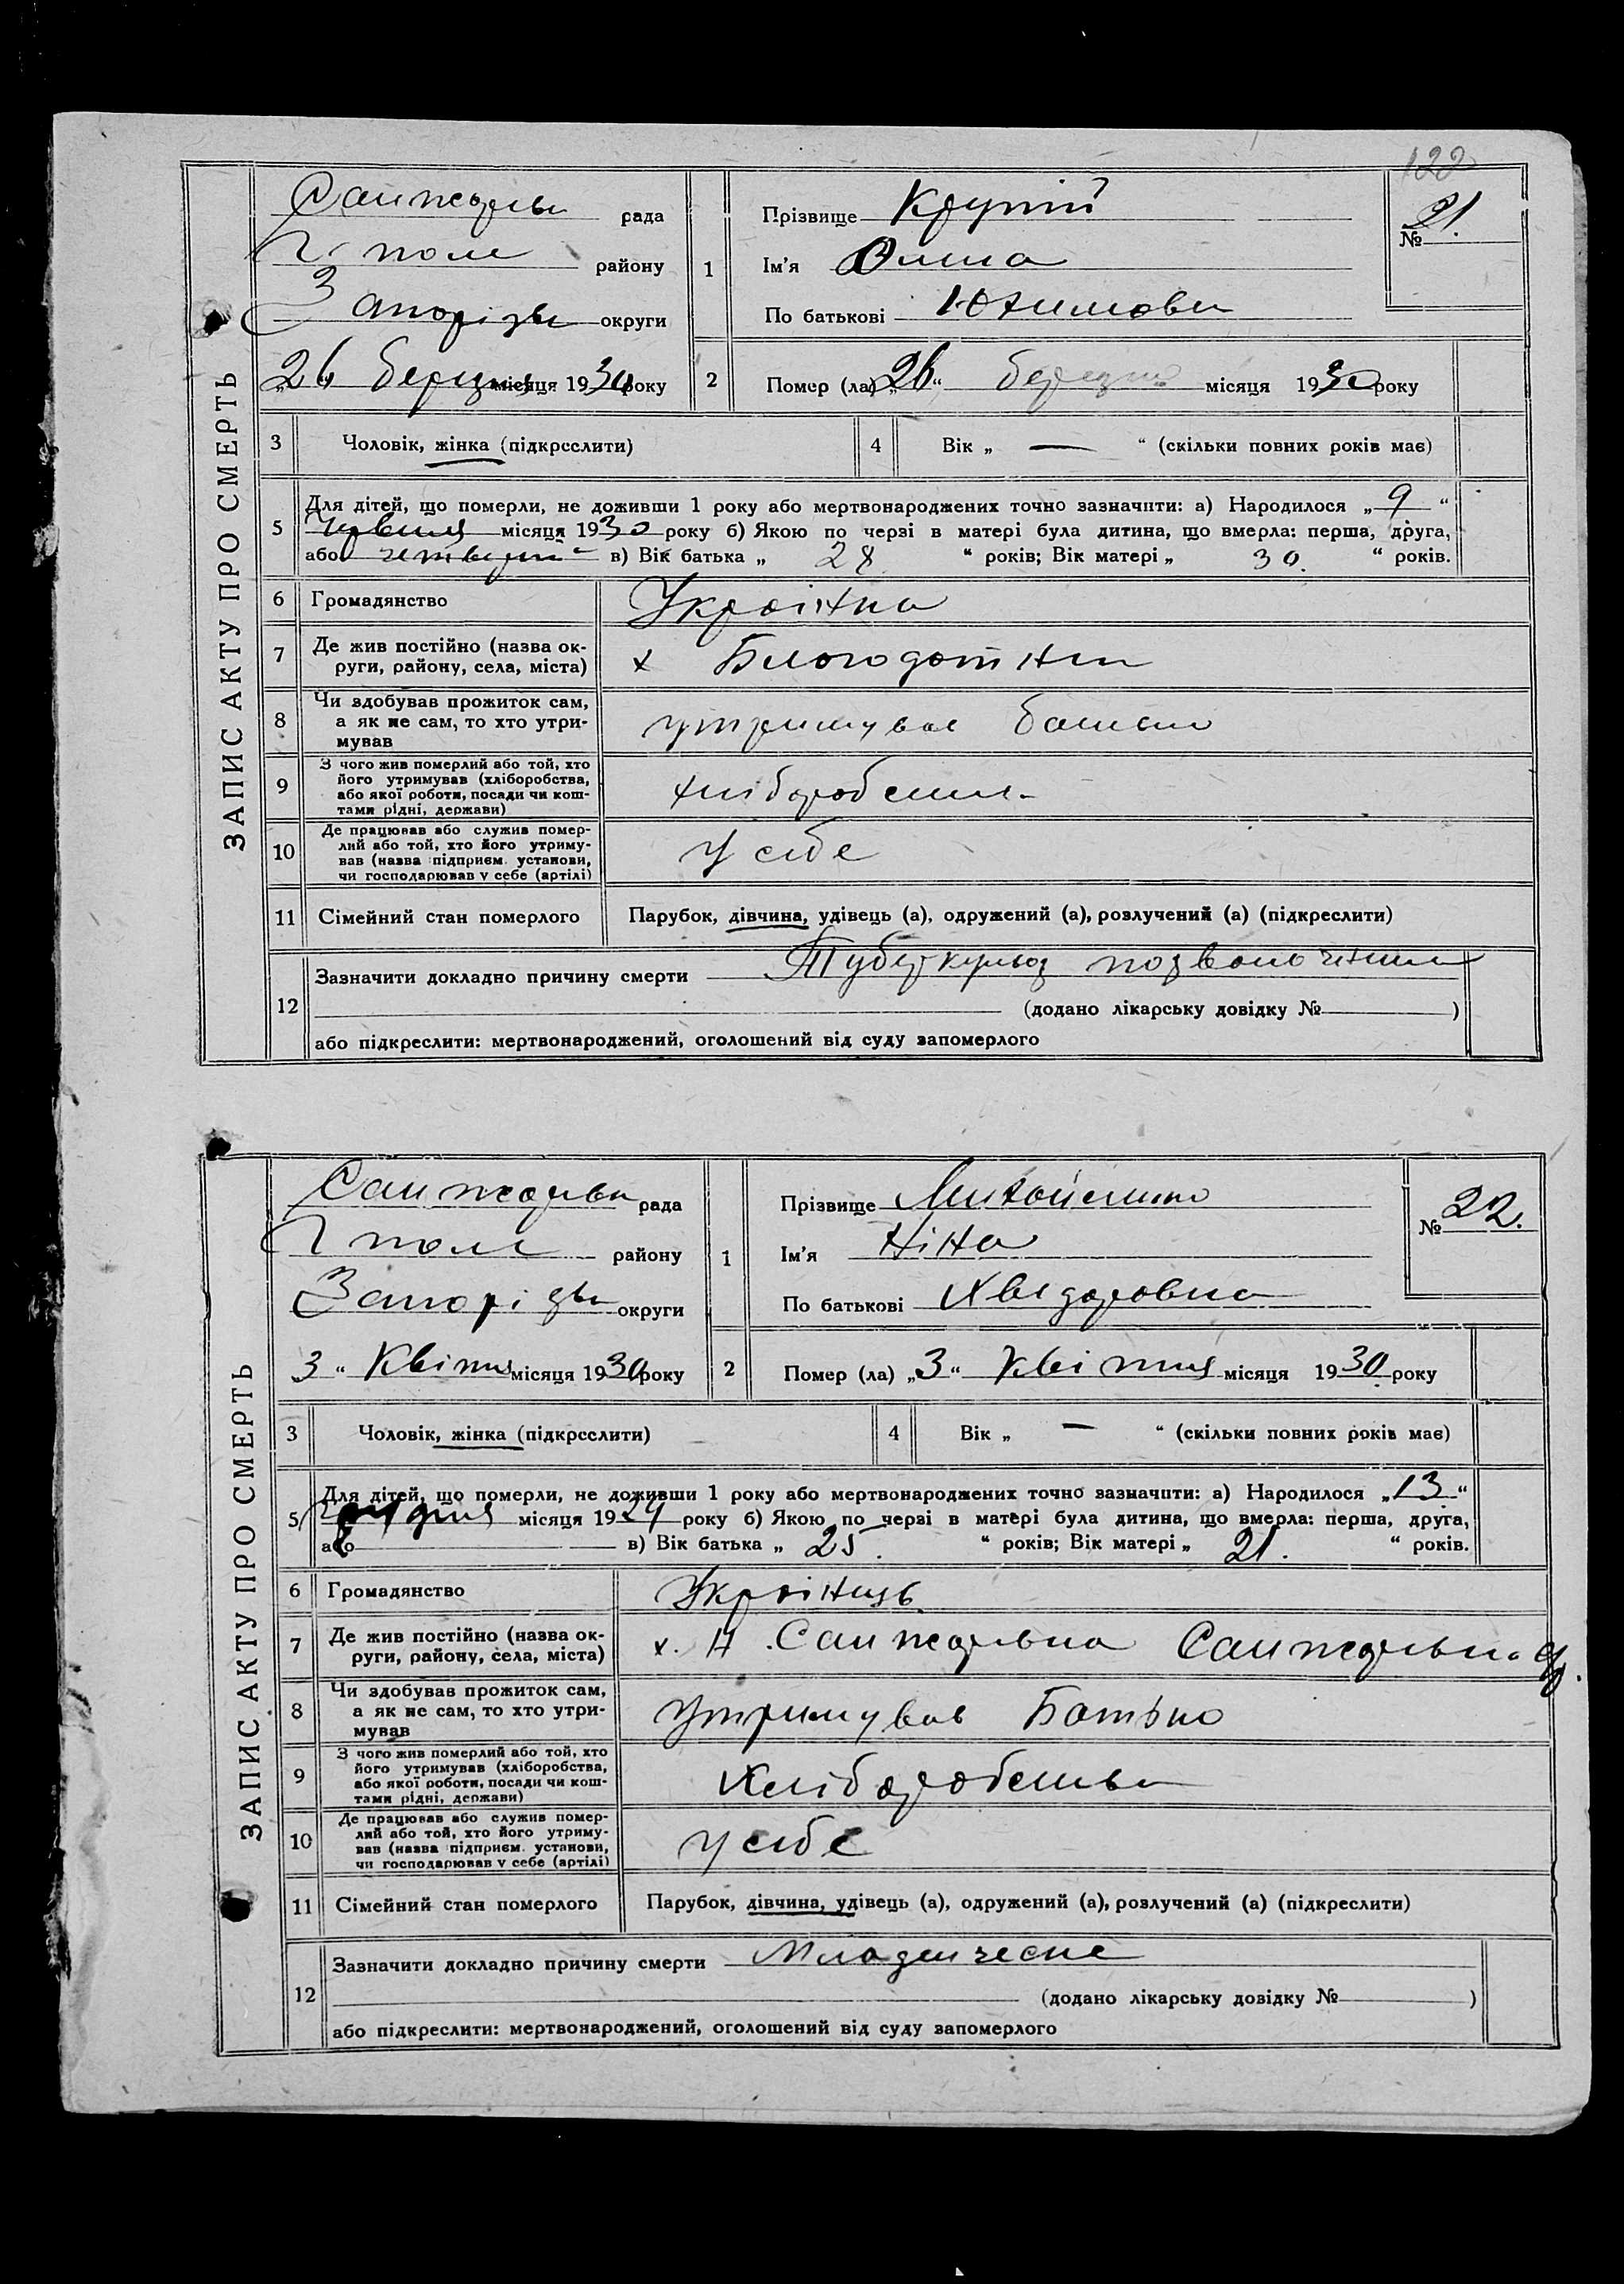 122
ЗАПИС АКТУ ПРО СМЕРТЬ
рада
Г. поле району
Запорізьк округи
„26“ березня місяця 1930 року
1
Прізвище Крутій
Ім'я
По батькові Юхимовн
№ 21.
2 Помер (ла) „26“ березня місяця 1930 року
3 Чоловік, жінка (підкреслити)
4 Вік „ — “ (скільки повних років має)
5 Для дітей, що померли, не доживши 1 року або мертвонароджених точно зазначити: а) Народилося „9“
червня місяця 1930 року б) Якою по черзі в матері була дитина, що вмерла: перша, друга,
або в) Вік батька „ 28 “ років; Вік матері „ 30. “ років.
6 Громадянство Украінка
7 Де жив постійно (назва ок-
руги, району, села, міста)
х Благодатни
8 Чи здобував прожиток сам,
а як не сам, то хто утри-
мував
утримував батько
9 З чого жив померлий або той, хто
його утримував (хліборобства,
або якої роботи, посади чи кош-
тами рідні, держави)
10 Де працював або служив помер-
лий або той, хто його утриму-
вав (назва підприєм. установи,
чи господарював у себе (артілі)
У себе
11 Сімейний стан померлого Парубок, дівчина, удівець (а), одружений (а), розлучений (а) (підкреслити)
12 Зазначити докладно причину смерти Туберкульоз позвоночника
(додано лікарську довідку № )
або підкреслити: мертвонароджений, оголошений від суду запомерлого
ЗАПИС АКТУ ПРО СМЕРТЬ
рада
Г поле району
Запорізьк округи
3 “ Квітня місяця 1930 року
1
Прізвище
Ім'я Ніна
По батькові Хведоровна
№ 22.
2 Помер (ла) „3“ Квітня місяця 1930 року
3 Чоловік, жінка (підкреслити)
4 Вік „ — “ (скільки повних років має)
5 Для дітей, що померли, не доживши 1 року або мертвонароджених точно зазначити: а) Народилося „13“
грудня місяця 1929 року б) Якою по черзі в матері була дитина, що вмерла: перша, друга,
або в) Вік батька „ 25. “ років; Вік матері „ 21. “ років.
6 Громадянство Украінць
7 Де жив постійно (назва ок-
руги, району, села, міста)
х. Н.
8 Чи здобував прожиток сам,
а як не сам, то хто утри-
мував
Утримував Батько
9 З чого жив померлий або той, хто
його утримував (хліборобства,
або якої роботи, посади чи кош-
тами рідні, держави)
Хліборобства
10 Де працював або служив помер-
лий або той, хто його утриму-
вав (назва підприєм. установи,
чи господарював у себе (артілі)
У себе
11 Сімейний стан померлого Парубок, дівчина, удівець (а), одружений (а), розлучений (а) (підкреслити)
12 Зазначити докладно причину смерти Младенческе
(додано лікарську довідку № )
або підкреслити: мертвонароджений, оголошений від суду запомерлого